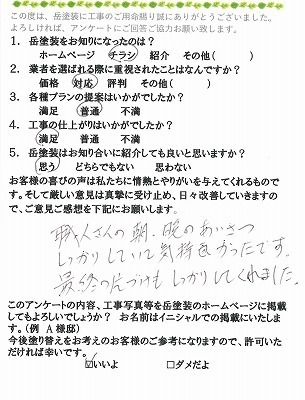 この度は、岳塗装に工事のご用命賜り誠にありがとうございました。
よろしければ、アンケートにご回答ご協力お願い致します。
1．岳塗装をお知りになったのは？
ホームページ　チラシ　紹介　その他(　　　)
2．業者を選ばれる際に重視されたことはなんですか？
価格　対応　評判　その他(　　　)
3．各種プランの提案はいかがでしたか？
満足　普通　不満
4．工事の仕上がりはいかがでしたか？
満足　普通　不満
5．岳塗装はお知り合いに紹介しても良いと思いますか？
思う　どちらでもない　思わない
お客様の喜びの声は私たちに情熱とやりがいを与えてくれるものです。
そして厳しい意見は真摯に受け止め、日々改善していきますので、
ご意見ご感想を下記にお願いします。
職人さんの朝、晩のあいさつ
しっかりしていて気持良かったです。
最終の片づけもしっかりしてくれました。
このアンケートの内容、工事写真等を岳塗装のホームページに掲載
してもよろしいでしょうか？　お名前はイニシャルでの掲載にいたしま
す。（例　A 様邸）
今後塗り替えをお考えのお客様のご参考になりますので、許可いた
だければ幸いです。
☑いいよ　□ダメだよ